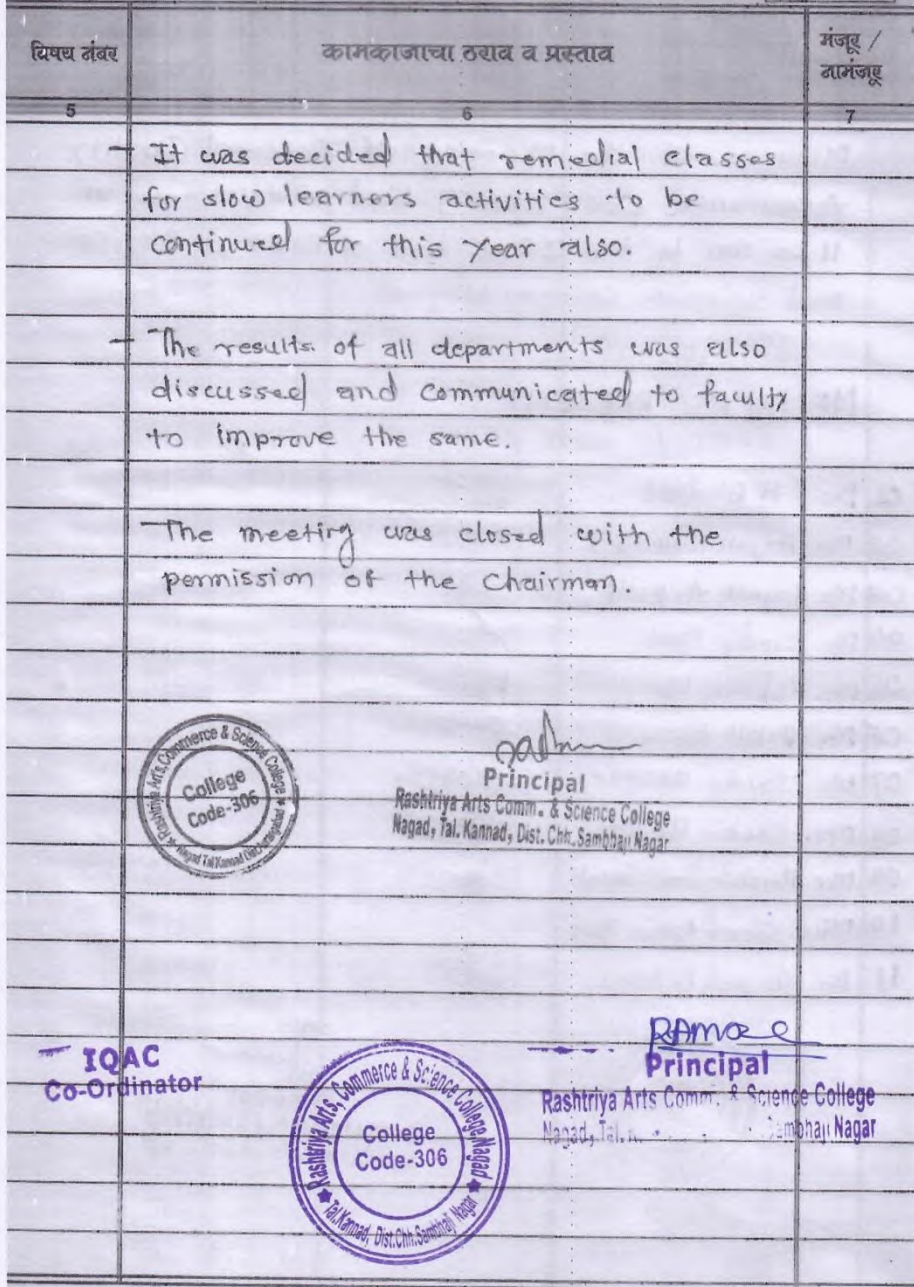 विषय नंबर
कामकाजाचा ठराव व प्रस्ताव
मंजूर /
नामंजूर
5
6
7
- It was decided that remedial classes
for slow learners activities to be
continued for this Year also.
- The results of all departments was also
discussed and communicated to faculty
to improve the same.
- The meeting was closed with the
permission of the Chairman.
Rashtriya Arts Commerce & Science College
College
Code-306
Nagad Tal.Kannad
Principal
Rashtriya Arts Comm. & Science College
Nagad, Tal. Kannad, Dist. Chh. Sambhaji Nagar
IQAC
Co-Ordinator
Rashtriya Arts, Commerce & Science College, Nagad
College
Code-306
Tal.Kannad, Dist.Chh.Sambhaji Nagar
Principal
Rashtriya Arts Comm. & Science College
Nagad, Tal. Sambhaji Nagar